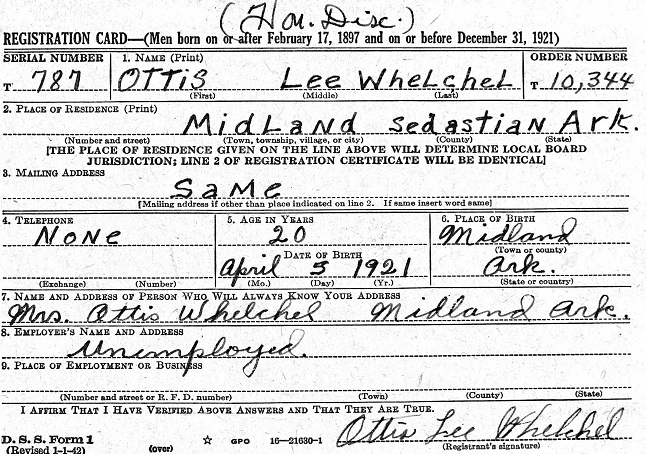 (Hon. Disc.)
REGISTRATION CARD—(Men born on or after February 17, 1897 and on or before December 31, 1921)
SERIAL NUMBER 1. NAME (Print) ORDER NUMBER
T 787 OTTIS Lee WHelcHel T 10,344
(First) (Middle) (Last)
2. PLACE OF RESIDENCE (Print)
MidLaNd SedastiaN Ark.
(Number and street) (Town, township, village, or city) (County) (State)
[THE PLACE OF RESIDENCE GIVEN ON THE LINE ABOVE WILL DETERMINE LOCAL BOARD
JURISDICTION; LINE 2 OF REGISTRATION CERTIFICATE WILL BE IDENTICAL]
3. MAILING ADDRESS
SaMe
[Mailing address if other than place indicated on line 2. If same insert word same]
4. TELEPHONE 5. AGE IN YEARS 6. PLACE OF BIRTH
NONe 20 Midland
DATE OF BIRTH (Town or county)
April 3 1921 Ark.
(Exchange) (Number) (Mo.) (Day) (Yr.) (State or country)
7. NAME AND ADDRESS OF PERSON WHO WILL ALWAYS KNOW YOUR ADDRESS
Mrs. Ottis Whelchel Midland Ark.
8. EMPLOYER'S NAME AND ADDRESS
Unimployed.
9. PLACE OF EMPLOYMENT OR BUSINESS
(Number and street or R. F. D. number) (Town) (County) (State)
I AFFIRM THAT I HAVE VERIFIED ABOVE ANSWERS AND THAT THEY ARE TRUE.
D. S. S. Form 1 GPO 16—21630-1 Ottis Lee Whelchel
(Revised 1-1-42) (over) (Registrant's signature)